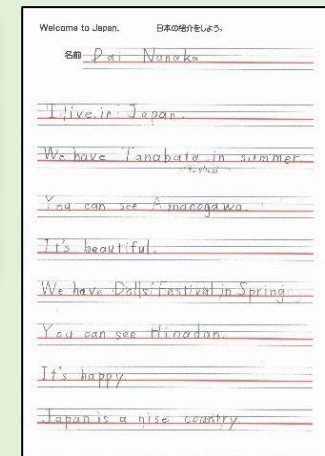 Welcome to Japan. 日本の紹介をしよう。
名前 Dai Nanaka
I live in Japan.
We have Tanabata in summer
You can see Amanogawa.
It's beautiful.
We have Dolls' Festival in Spring.
You can see Hinadan.
It's happy.
Japan is a nise country.